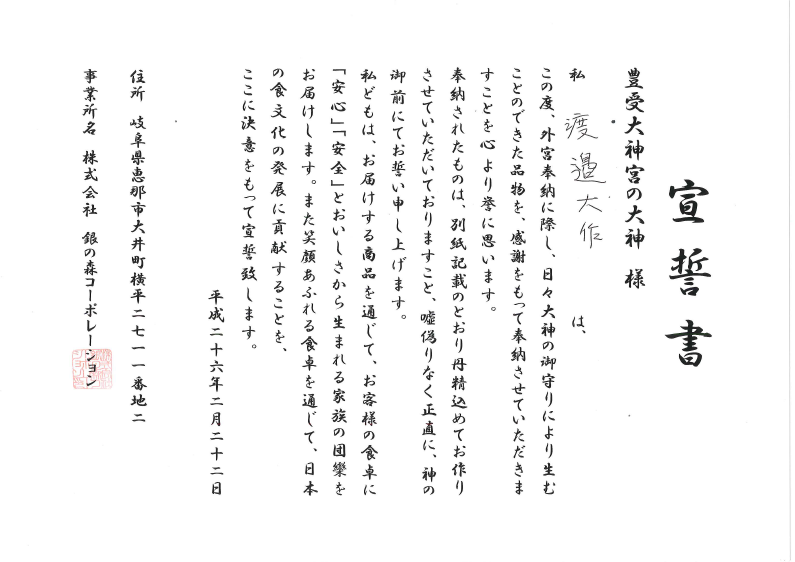 宣誓書
豊受大神宮の大神 様
私 渡邉大作 は、
この度、外宮奉納に際し、日々大神の御守りにより生む
ことのできた品物を、感謝をもって奉納させていただきま
すことを心より誉に思います。
奉納されたものは、別紙記載のとおり丹精込めてお作り
させていただいておりますこと、嘘偽りなく正直に、神の
御前にてお誓い申し上げます。
私どもは、お届けする商品を通じて、お客様の食卓に
「安心」「安全」とおいしさから生まれる家族の団欒を
お届けします。また笑顔あふれる食卓を通じて、日本
の食文化の発展に貢献することを、
ここに決意をもって宣誓致します。
平成二十六年二月二十二日
住所 岐阜県恵那市大井町横平二七一一番地二
事業所名 株式会社 銀の森コーポレーション